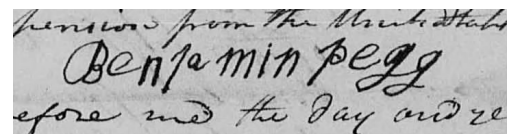 pension from the United States
Benjamin pegg
efore me the day and ye